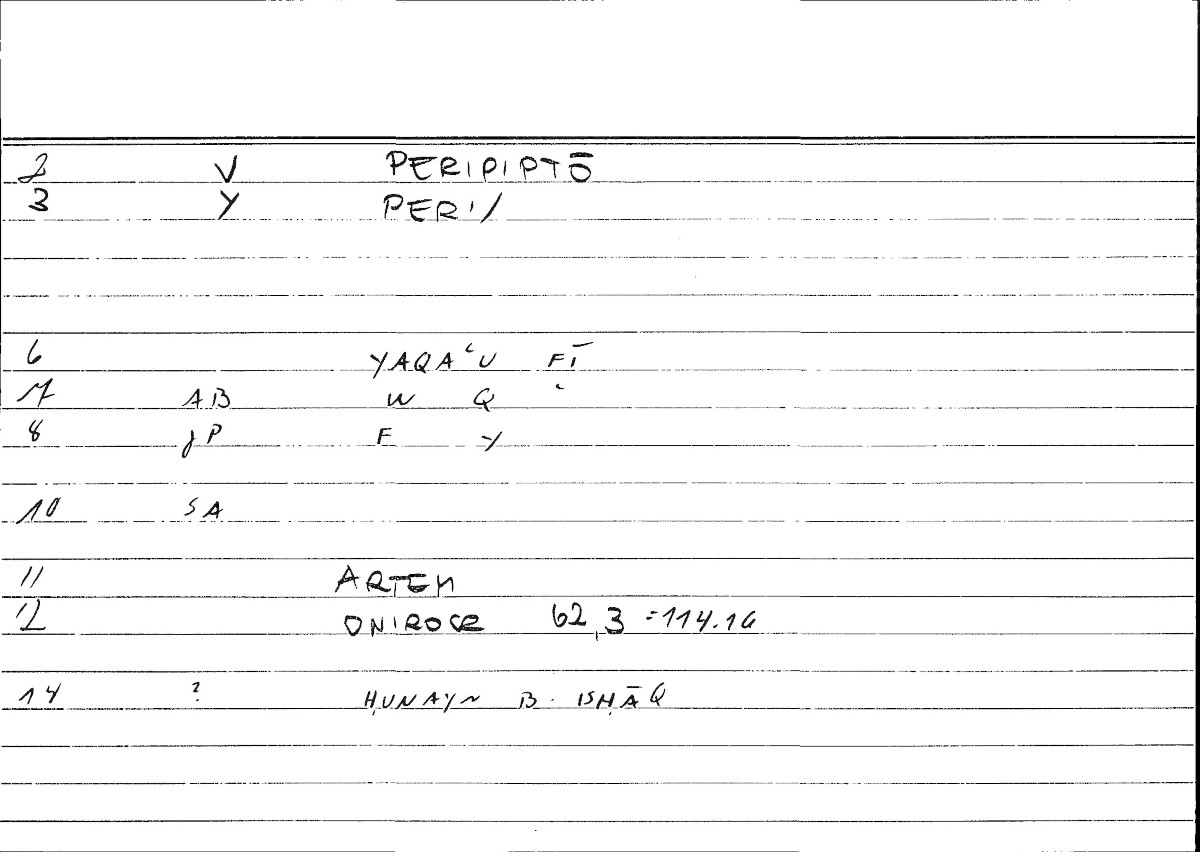 2 V PERIPIPTŌ
3 Y PERI/
6 YAQAʿU FĪ
7 AB W Q ʿ
8 JP F Y
10 SA
11 ARTEM
12 ONIROCR 62,3 =114.16
14 ? ḤUNAYN B. ISḤĀQ